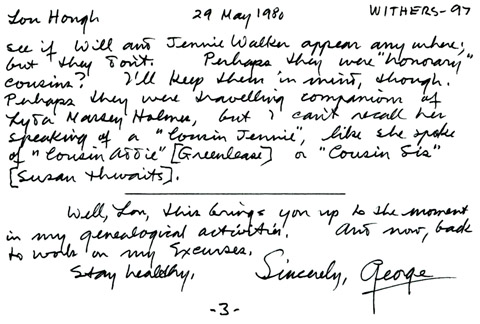 Lon Hough 29 May 1980 WITHERS-97
see if Will and Jennie Walker appear anywhere;
but they don't. Perhaps they were "honorary"
cousins? I'll keep them in mind, though.
Perhaps they were travelling companions of
Lyda Marsey Holmes, but I can't recall her
speaking of a "Cousin Jennie", like she spoke
of "Cousin Addie" [Greenlease] or "Cousin Sis"
[Susan Thwaits].
Well, Lon, this brings you up to the moment
in my genealogical activities. And now, back
to work on my Excurses.
Stay healthy, Sincerely, George
-3-